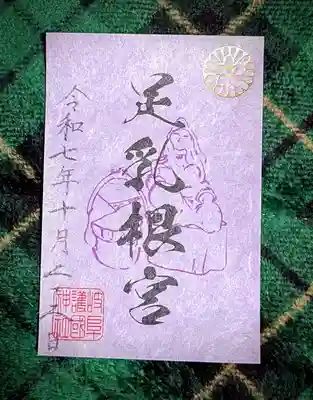 足乳根宮
令和七年十月
岐阜
護國
神社